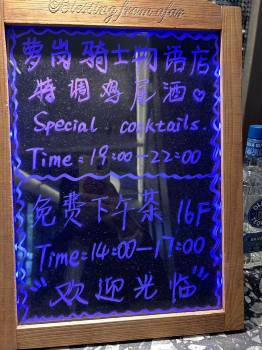 Blessing from afar
萝岗骑士物语店
特调鸡尾酒♡
Special cocktails.
Time=19:00—22:00
免费下午茶 16F
Time=14:00—17:00
"欢迎光临"